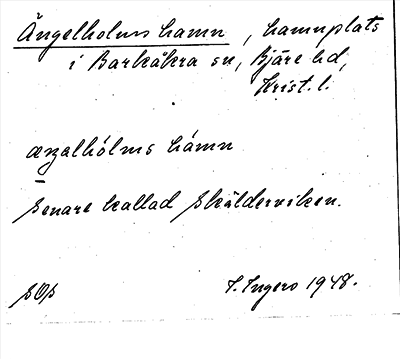 Ängelholms hamn, hamnplats
i Barkåkra sn, Bjäre hd,
Krist. l.
æŋalhólms hámn
Senare kallad Skälderviken.
SOS
I. Ingers 1948.